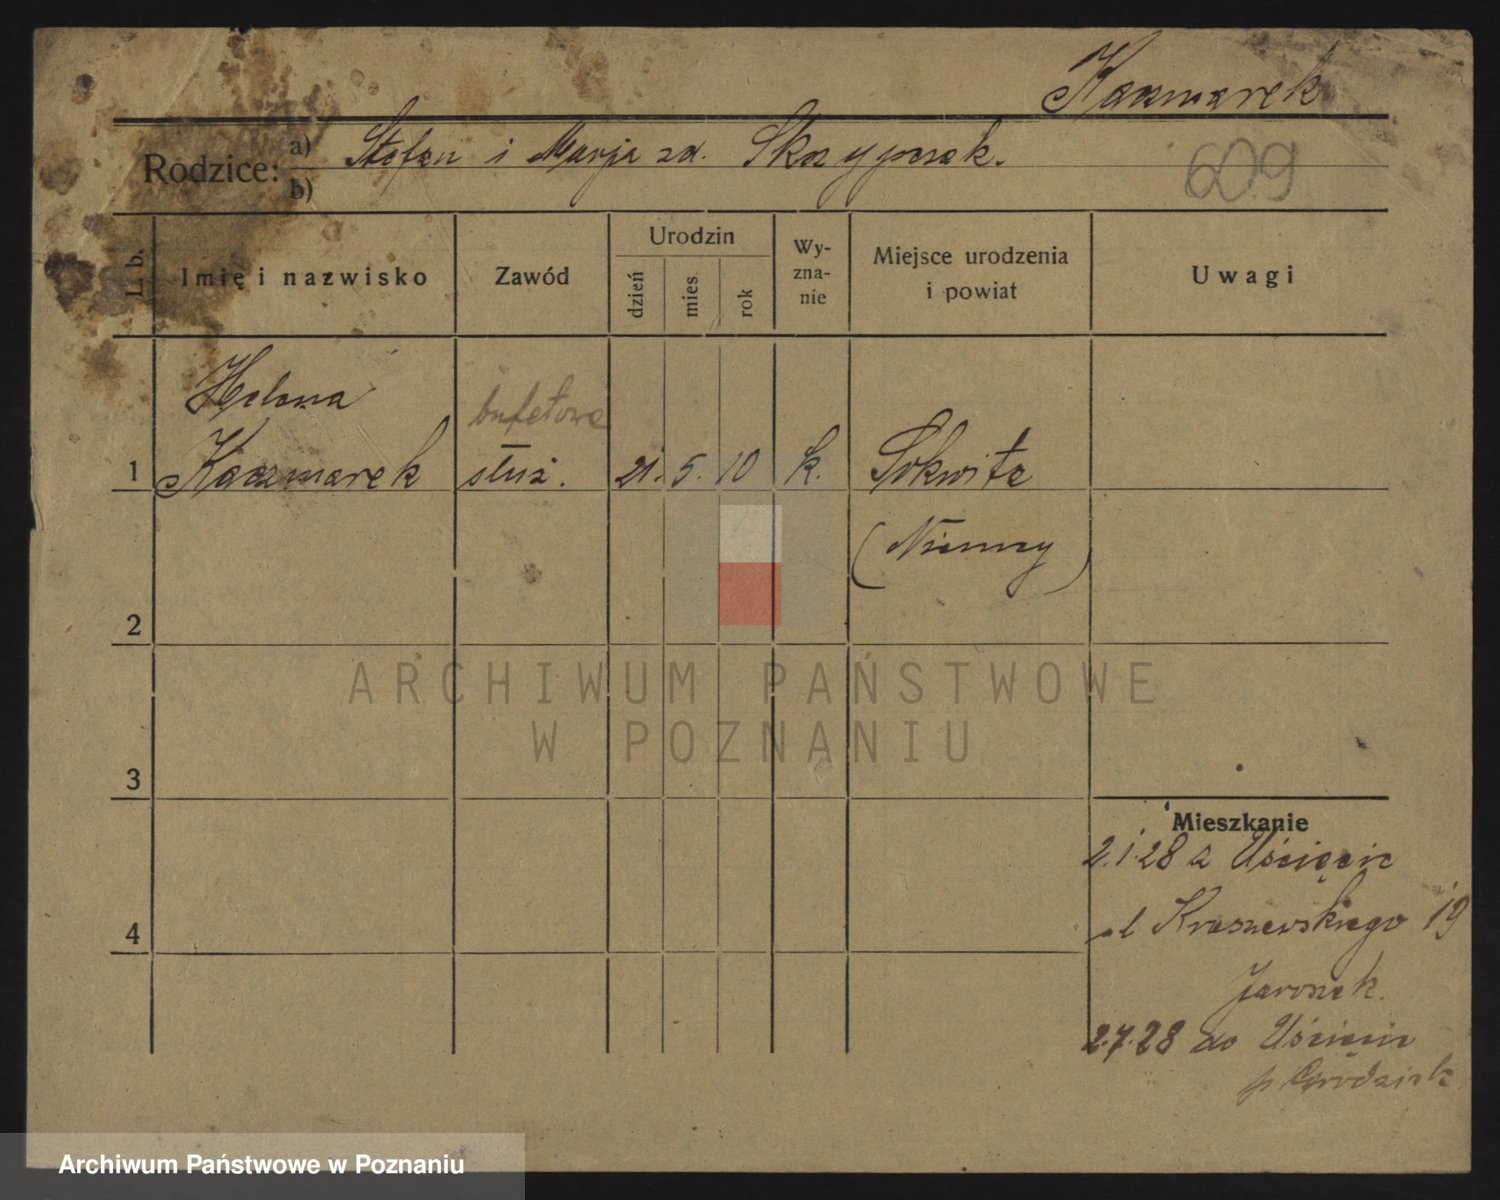 Kaczmarek
Rodzice: a) Stefan i Marja zd. Skrzypczak.
b)
609
L. b.
Imię i nazwisko
Zawód
Urodzin
dzień
mies.
rok
Wy-
zna-
nie
Miejsce urodzenia
i powiat
Uwagi
Helena
bufetowa
1 Kaczmarek służ. 21. 5. 10 k.
(Niemcy)
2
3
4
ARCHIWUM PAŃSTWOWE
W POZNANIU
Mieszkanie
2.1.28 z Uścięcic
ul Kraszewskiego 19
Jaroszek.
2.7.28 do Uścięcic
p Grodzisk
Archiwum Państwowe w Poznaniu